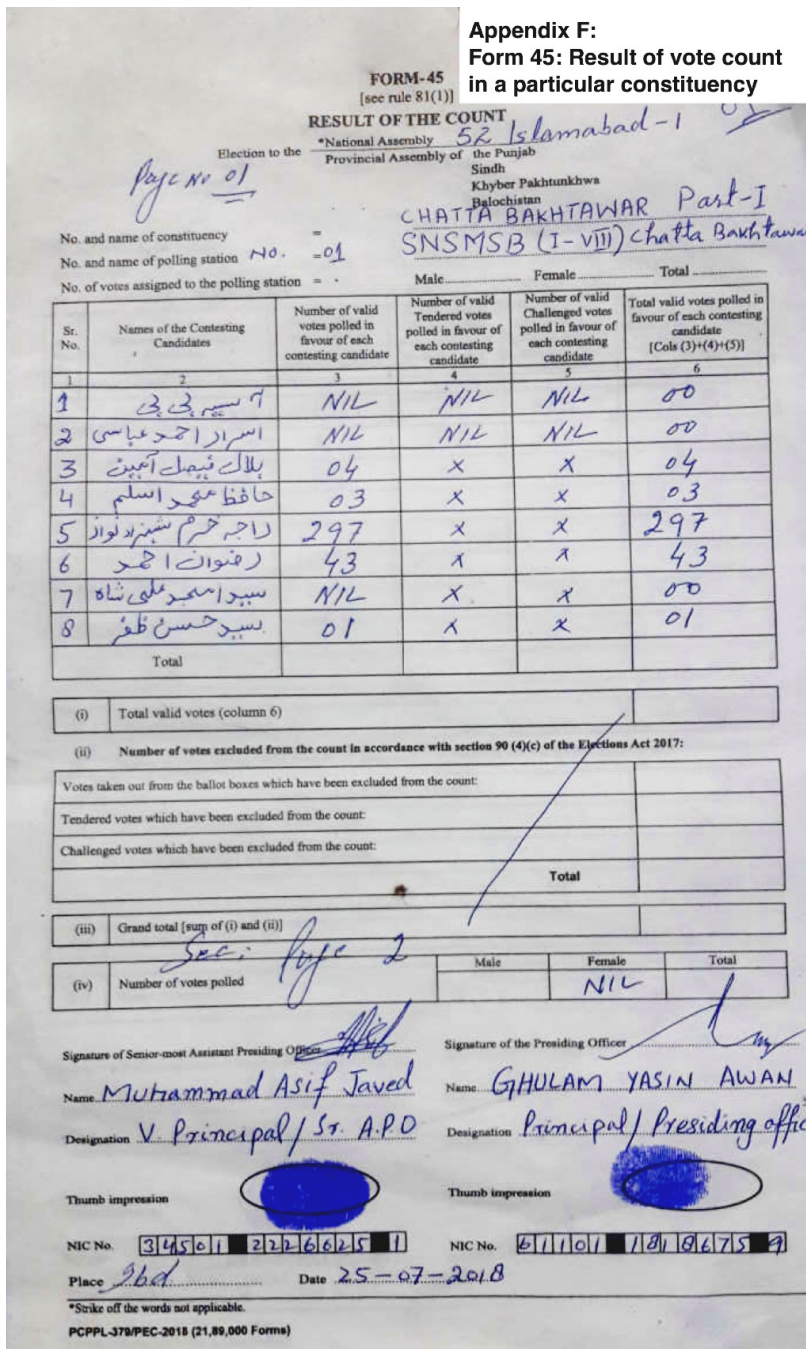 Appendix F:
Form 45: Result of vote count
in a particular constituency
FORM-45
[see rule 81(1)]
RESULT OF THE COUNT
Election to the *National Assembly 52 Islamabad-1
Provincial Assembly of the Punjab
Sindh
Khyber Pakhtunkhwa
Balochistan
Page No 01
No. and name of constituency = CHATTA BAKHTAWAR Part-I
No. and name of polling station No. =01 SNSMSB (I-VIII) Chatta Bakhtawa
No. of votes assigned to the polling station = . Male Female Total
Sr. No. Names of the Contesting Candidates Number of valid votes polled in favour of each contesting candidate Number of valid Tendered votes polled in favour of each contesting candidate Number of valid Challenged votes polled in favour of each contesting candidate Total valid votes polled in favour of each contesting candidate [Cols (3)+(4)+(5)]
1 2 3 4 5 6
1 آسیہ بی بی NIL NIL NIL 00
2 اسرار احمد عباسی NIL NIL NIL 00
3 بلال فیصل آمین 04 × × 04
4 حافظ محمد اسلم 03 × × 03
5 راجہ خرم شہزاد نواز 297 × × 297
6 رضوان احمد 43 × × 43
7 سید امجد علی شاہ NIL × × 00
8 سید حسن ظفر 01 × × 01
Total
(i) Total valid votes (column 6)
(ii) Number of votes excluded from the count in accordance with section 90 (4)(c) of the Elections Act 2017:
Votes taken out from the ballot boxes which have been excluded from the count:
Tendered votes which have been excluded from the count:
Challenged votes which have been excluded from the count:
Total
(iii) Grand total [sum of (i) and (ii)]
See: Page 2
Male Female Total
(iv) Number of votes polled NIL
Signature of Senior-most Assistant Presiding Officer Signature of the Presiding Officer
Name Muhammad Asif Javed Name GHULAM YASIN AWAN
Designation V. Principal/Sr. A.P.O Designation Principal/Presiding offic
Thumb impression Thumb impression
NIC No. 34501 2226625 1 NIC No. 61101 1818675 9
Place Ibd Date 25-07-2018
*Strike off the words not applicable.
PCPPL-379/PEC-2018 (21,89,000 Forms)